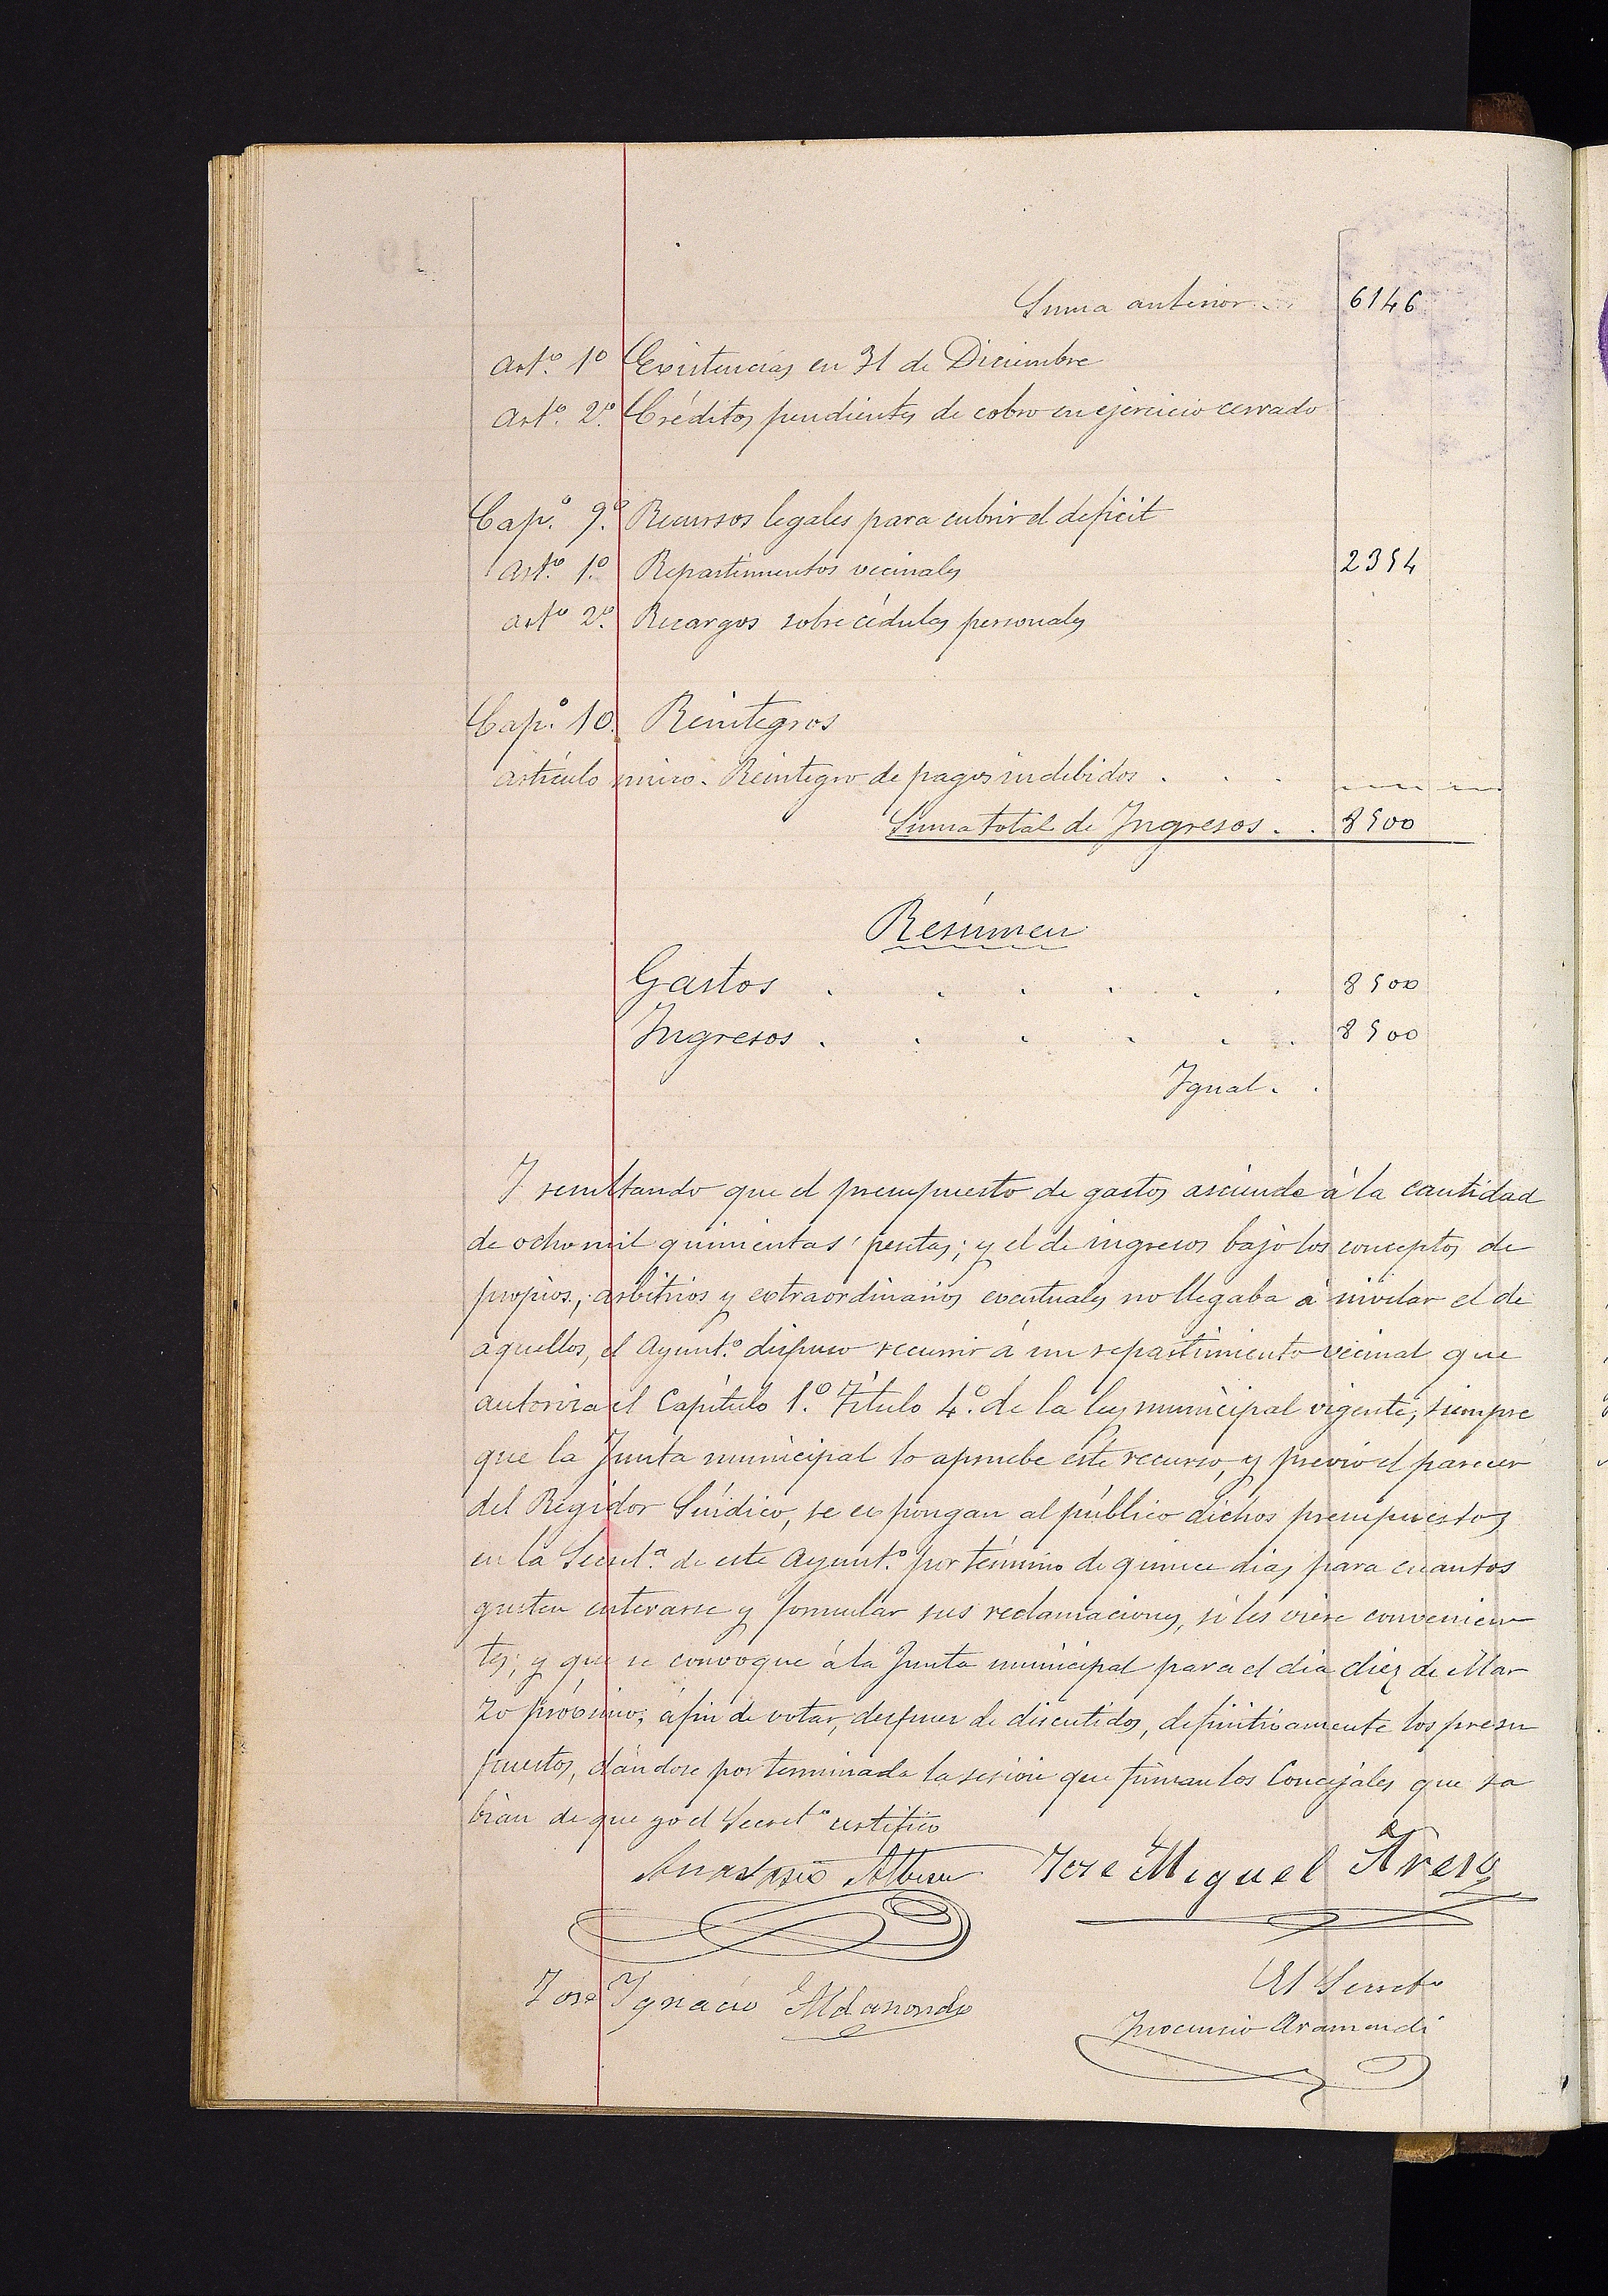 Suma anterior . . 6146
Art.º 1º Existencias en 31 de Diciembre
Art.º 2.º Créditos pendientes de cobro en ejercicio cerrado
Cap.º 9.º Recursos legales para cubrir el deficit
Art.º 1.º Repartimientos vecinales 2354
Artº 2.º Recargos sobre cédulas personales
Cap.º 10. Reintegros
Artículo único. Reintegro de pagos indebidos . . .
Suma total de Ingresos . . 8500
Resúmen
Gastos . . . . . . 8500
Ingresos . . . . . . 8500
Igual . .
Y resultando que el presupuesto de gastos asciende á la cantidad
de ocho mil quinientas pesetas; y el de ingresos bajo los conceptos de
propios, arbitrios y extraordinarios eventuales no llegaba á nivelar el de
aquellos, el Ayunt.º dispuso recurrir á un repartimiento vecinal que
autoriza el Capítulo 1.º Título 4.º de la ley municipal vigente, siempre
que la Junta municipal lo apruebe este recurso, y previo el parecer
del Regidor Síndico, se expongan al público dichos presupuestos
en la Secret.ª de este Ayunt.º por término de quince dias para cuantos
gusten enterarse y formular sus reclamaciones, si les viere convenien
tes; y que se convoque á la Junta municipal para el dia diez de Mar
zo próximo, á fin de votar, despues de discutidos, definitivamente los presu
puestos, dándose por terminada la sesión que firman los Concejales que sa
bian de que yo el Secretº certifico
Anastasio Alberu José Miguel Areso
José Ignacio Aldasondo
El Secretº
Inocencio Aramendi